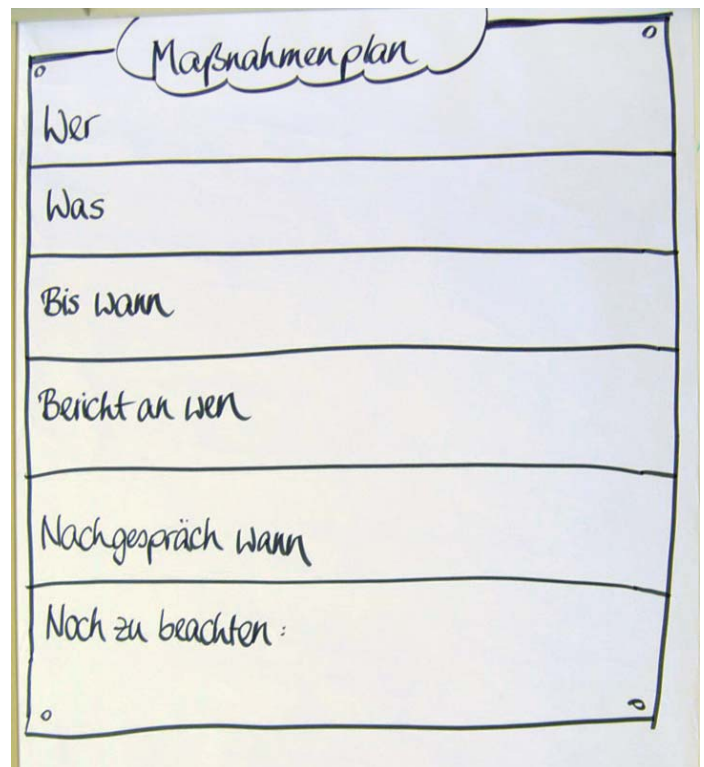 Maßnahmenplan
Wer
Was
Bis wann
Bericht an wen
Nachgespräch wann
Noch zu beachten: